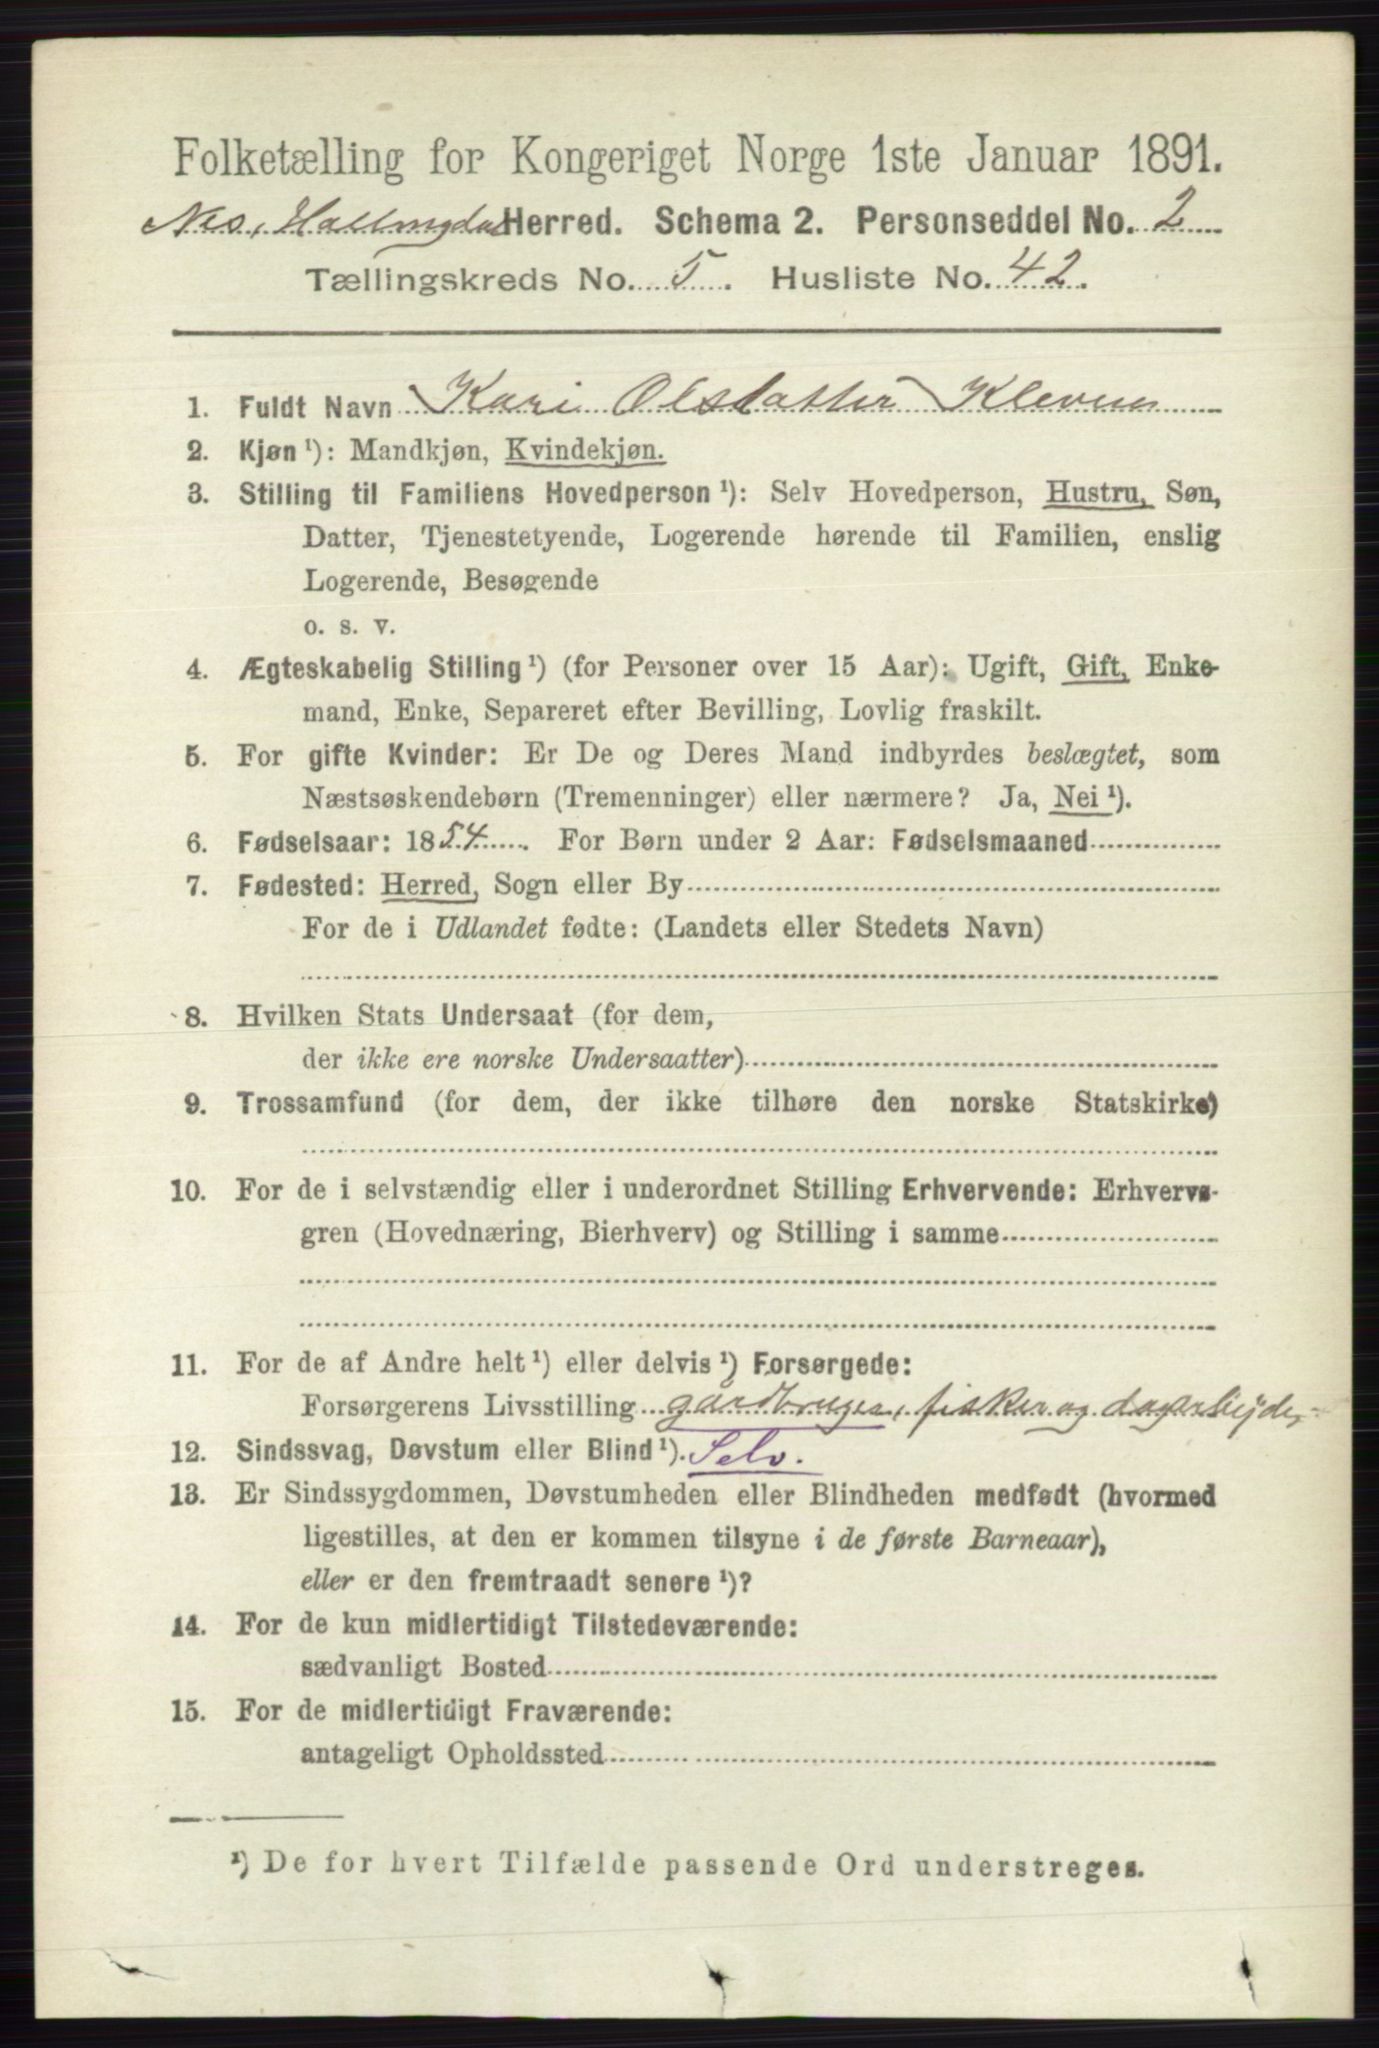 Folketælling for Kongeriget Norge 1ste Januar 1891.
Nes, Hallingdal Herred. Schema 2. Personseddel No. 2
Tællingskreds No. 5. Husliste No. 42.
1. Fuldt Navn Kari Olsdatter Kleven
2. Kjøn¹): Mandkjøn, Kvindekjøn.
3. Stilling til Familiens Hovedperson¹): Selv Hovedperson, Hustru, Søn,
Datter, Tjenestetyende, Logerende hørende til Familien, enslig
Logerende, Besøgende
o. s. v.
4. Ægteskabelig Stilling¹) (for Personer over 15 Aar): Ugift, Gift, Enke-
mand, Enke, Separeret efter Bevilling, Lovlig fraskilt.
5. For gifte Kvinder: Er De og Deres Mand indbyrdes beslægtet, som
Næstsøskendebørn (Tremenninger) eller nærmere? Ja, Nei¹).
6. Fødselsaar: 1854. For Børn under 2 Aar: Fødselsmaaned
7. Fødested: Herred, Sogn eller By
For de i Udlandet fødte: (Landets eller Stedets Navn)
8. Hvilken Stats Undersaat (for dem,
der ikke ere norske Undersaatter)
9. Trossamfund (for dem, der ikke tilhøre den norske Statskirke)
10. For de i selvstændig eller i underordnet Stilling Erhvervende: Erhvervs-
gren (Hovednæring, Bierhverv) og Stilling i samme
11. For de af Andre helt¹) eller delvis¹) Forsørgede:
Forsørgerens Livsstilling gårdbruger, fisker og dagarbejder
12. Sindssvag, Døvstum eller Blind¹). Selv.
13. Er Sindssygdommen, Døvstumheden eller Blindheden medfødt (hvormed
ligestilles, at den er kommen tilsyne i de første Barneaar),
eller er den fremtraadt senere¹)?
14. For de kun midlertidigt Tilstedeværende:
sædvanligt Bosted
15. For de midlertidigt Fraværende:
antageligt Opholdssted
¹) De for hvert Tilfælde passende Ord understreges.